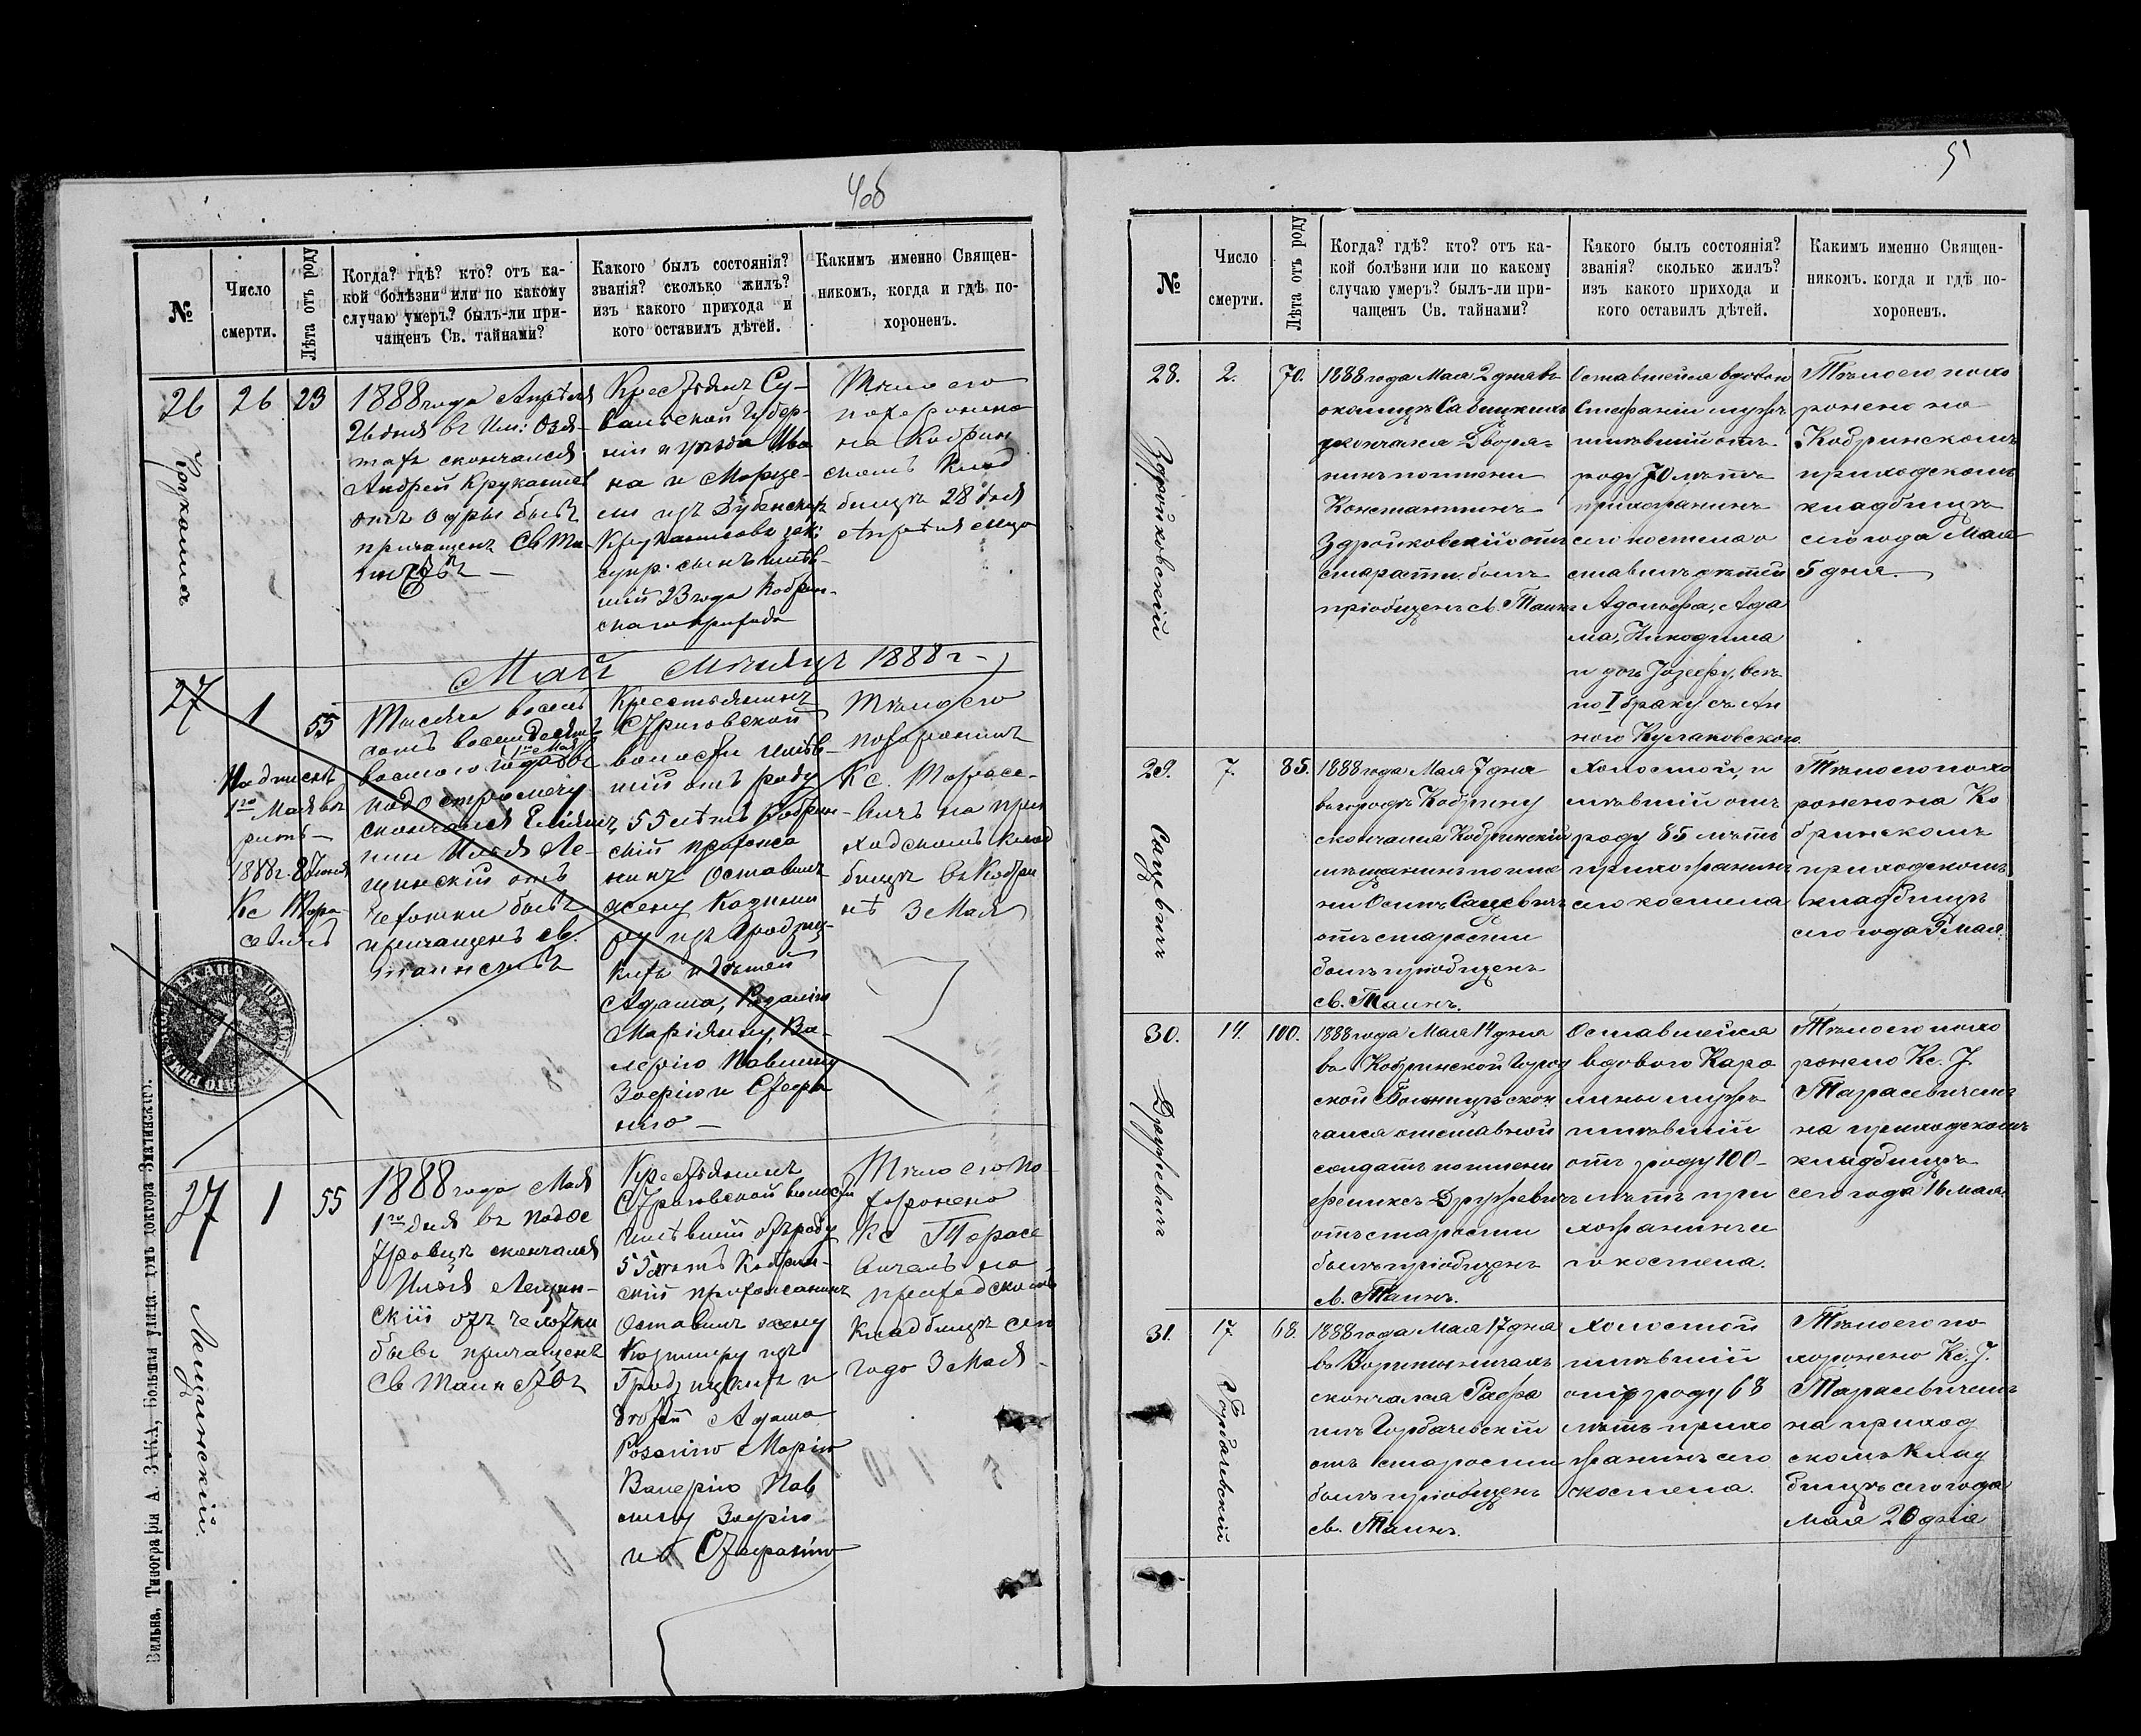 4об
№
Число
смерти.
Лѣта отъ роду
Когда? гдѣ? кто? отъ ка-
кой болѣзни или по какому
случаю умеръ? былъ-ли при-
чащенъ Св. тайнами?
Какого былъ состоянія?
званія? сколько жилъ?
изъ какого прихода и
кого оставилъ дѣтей.
Какимъ именно Священ-
никомъ, когда и гдѣ по-
хороненъ.
26
26
23
1888 года Апрѣля
26 дня въ Им:
скончался
Андрей
былъ
причащенъ Св Та
Су-
валкской Губер-
ніи и уѣзда Ива
на и
изъ
сынъ имѣв-
шій 23 года Кобрин-
скаго прихода
Тѣло его
похоронено
на Кобрин
скомъ Клад
бищѣ 28 дня
Апрѣля
Май Мѣсяцъ 1888 г
27
1
55
1го Мая
1888г. 8 Іюня
Кс Тара
севичъ
Тысяча восемь
сотъ восемьдесятъ
восьмого года
1го Мая
скончался
Илья Ле-
щинскій отъ
чахотки былъ
причащенъ св.
таинствъ
Крестьянинъ
волости имѣв-
шій отъ роду
55 лѣтъ Кобрин-
скій прихожа
нинъ оставилъ
жену Казими
ру изъ Гродзиц-
кихъ и дѣтей
Адама, Розалію
Маріянну, Ва-
лерію Павлину
Зофію и Стефа
нію
Тѣло его
похоронилъ
Кс. Тарасе-
вичъ на при
ходскомъ клад
бищѣ въ Кобри
нѣ 3 Мая
27
1
55
Лещинскій.
1888 года Мая
1го дня въ
скончался
Илья Лещин-
скій отъ чахотки
бывъ причащенъ
Св Таинствъ
Крестьянинъ
волости
имѣвшій отъ роду
55 лѣтъ Кобрин-
скій прихожанинъ
Оставилъ жену
Казимиру изъ
Гродзицкихъ и
дѣтей Адама
Розалію Марію
Валерію Пав
лину Зофію
и Стефанію
Тѣло его по-
хоронено
Кс Тарасе
вичемъ на
приходскомъ
Кладбищѣ сего
года 3 Мая
Вильна, Типографія А. ЗАКА, Большая улица, домъ доктора
5
№
Число
смерти.
Лѣта отъ роду
Когда? гдѣ? кто? отъ ка-
кой болѣзни или по какому
случаю умеръ? былъ-ли при-
чащенъ Св. тайнами?
Какого былъ состоянія?
званія? сколько жилъ?
изъ какого прихода и
кого оставилъ дѣтей.
Какимъ именно Священ-
никомъ. когда и гдѣ по-
хороненъ.
28.
2.
70.
Здройковскій
1888 года Мая 2 дня въ
околицѣ Савицкихъ
скончался Дворя-
нинъ по имени
Константинъ
Здройковскій отъ
старости былъ
пріобщенъ св. Таинъ
Оставшейся вдовою
Стефаніи мужъ
имѣвшій отъ
роду 70 лѣтъ
прихожанинъ
сего костела о
ставилъ дѣтей
Адольфа, Ада
ма, Никодима
и дочь Іозефу,
по I браку съ Ан
ною Кулаковскою.
Тѣло его похо
ронено на
Кобринскомъ
приходскомъ
кладбищѣ
сего года Мая
5 дня.
29.
7.
85.
Сацевичъ
1888 года Мая 7 дня
въ городѣ Кобрину
скончался Кобринскій
мѣщанинъ по име
ни Осипъ Сацевичъ
отъ старости
былъ пріобщенъ
св. Таинъ.
Холостой, и
мѣвшій отъ
роду 85 лѣтъ
прихожанинъ
сего костела
Тѣло его похо
ронено на Ко
бринскомъ
приходскомъ
кладбищѣ
сего года 9 Мая.
30.
14.
100.
Дружевичъ
1888 года Мая 14 дня
въ Кобринской Город
ской Больницѣ скон
чался отставной
солдатъ по имени
Феликсъ Дружевичъ
отъ старости
былъ пріобщенъ
св. Таинъ.
Оставшейся
вдовою Каро
лины мужъ
имѣвшій
отъ роду 100
лѣтъ при
хожанинъ се
го костела.
Тѣло его похо
ронено Кс. J.
Тарасевичемъ
на приходскомъ
кладбищѣ
сего года 16 мая.
31.
17.
68.
Горбачевскій
1888 года Мая 17 дня
въ
скончался Рафа
илъ Горбачевскій
отъ старости
былъ пріобщенъ
св. Таинъ.
Холостой
имѣвшій
отъ роду 68
лѣтъ прихо
жанинъ сего
костела.
Тѣло его по
хоронено Кс. J.
Тарасевичемъ
на приход
скомъ Клад
бищѣ сего года
мая 20 дня